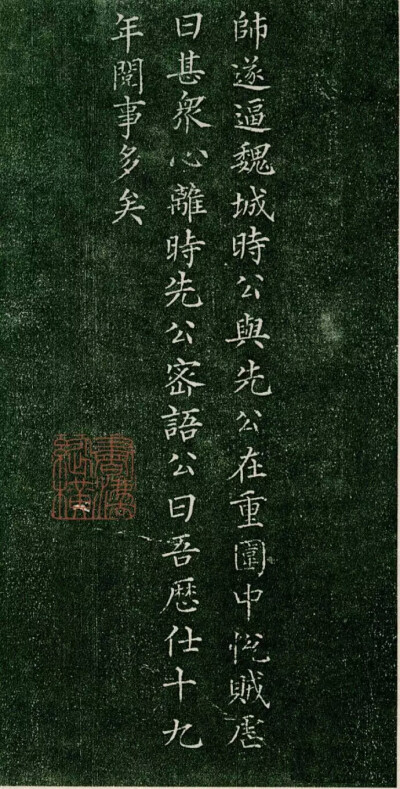 師遂逼魏城時公與先公在重圍中恱賊虐
日甚衆心離時先公密語公曰吾歷仕十九
年閱事多矣